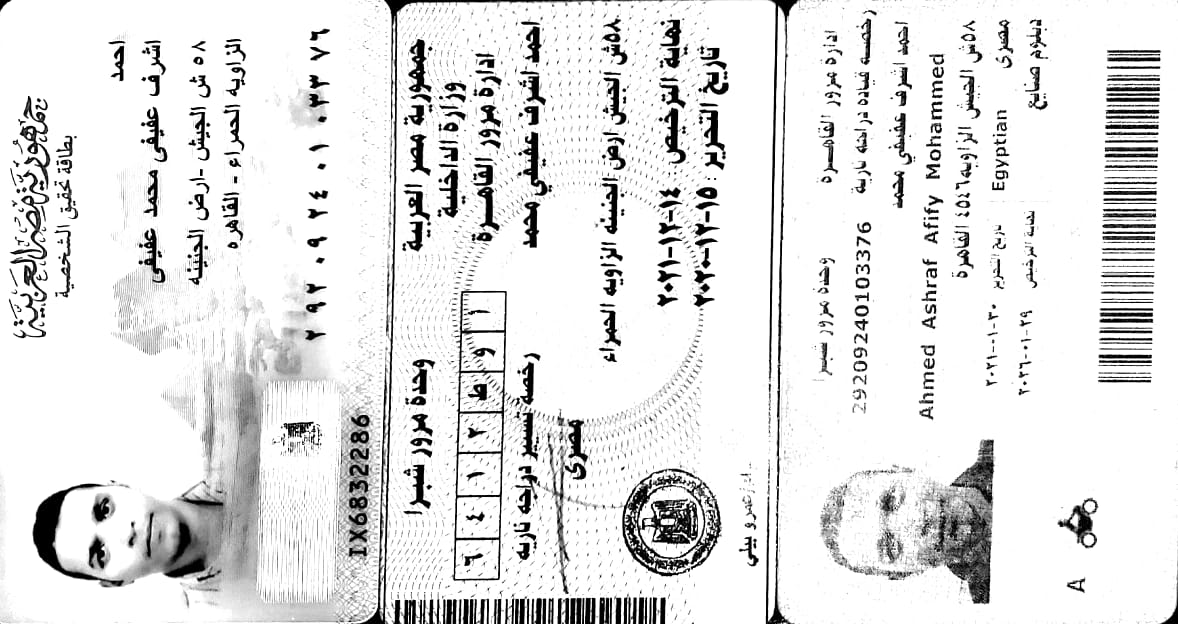 جمهورية مصر العربية
بطاقة تحقيق الشخصية
احمد
اشرف عفيفى محمد عفيفى
٥٨ ش الجيش -ارض الجنينه
الزاويه الحمراء - القاهره
٢٩٢٠٩٢٤٠١٠٣٣٧٦
IX6832286
جمهورية مصر العربية
وزارة الداخلية
ادارة مرور القاهرة
وحدة مرور شبرا
أ و ط ٢ ١ ٤ ٦
رخصة تسيير دراجه ناريه
احمد اشرف عفيفي محمد
مصرى
٥٨ش الجيش ارض الجنينه الزاويه الحمراء
نهاية الترخيص : ١٤-١٢-٢٠٢١
تاريخ التحرير : ١٥-١٢-٢٠٢٠
ادارة مرور القاهرة
وحدة مرور شبرا
رخصة قيادة دراجه ناريه
29209240103376
احمد اشرف عفيفي محمد
Ahmed Ashraf Afify Mohammed
٥٨ش الجيش الزاويه ٤٥٤٦ القاهرة
مصرى Egyptian
تاريخ التحرير ٣٠-٠١-٢٠٢١
دبلوم صنايع
نهاية الترخيص ٢٩-٠١-٢٠٢٦
A